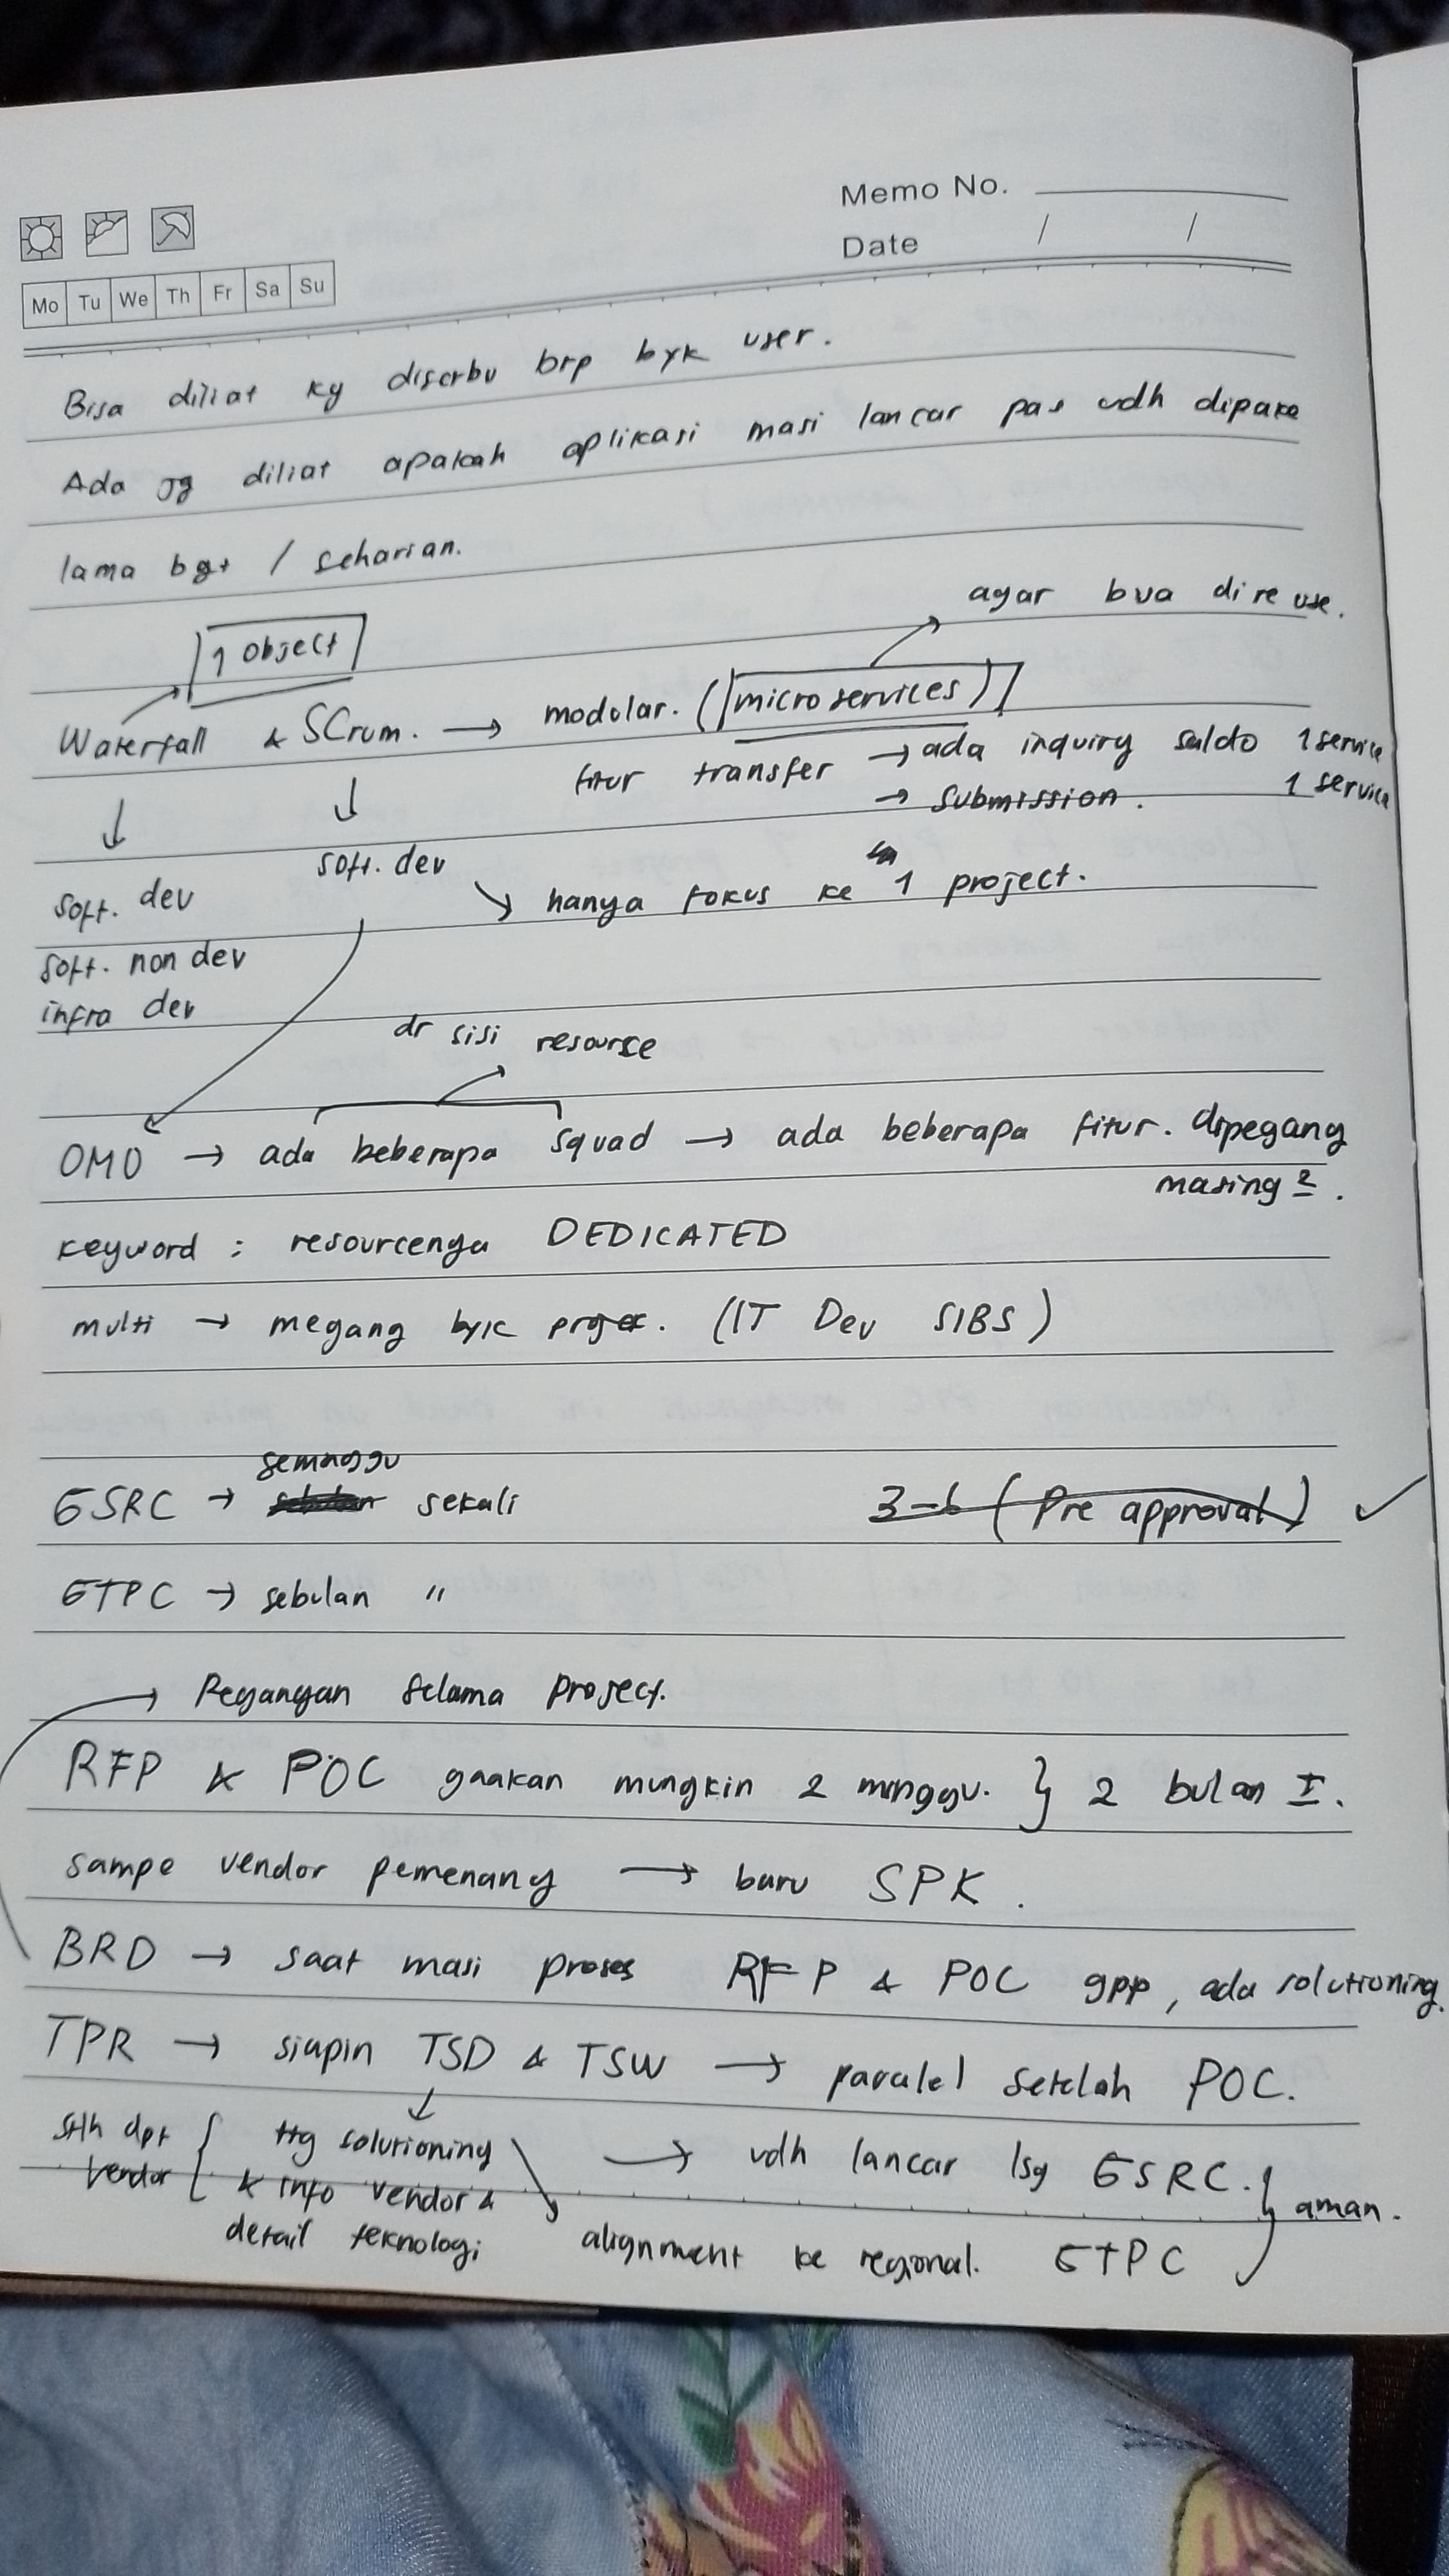 Memo No.
Date / /
Mo Tu We Th Fr Sa Su
Bisa diliat ky diserbu brp byk user.
Ada jg diliat apakah aplikasi masi lancar pas udh dipake
lama bgt / seharian.
agar bisa di re use.
1 object
Waterfall & SCrum. → modular. (microservices)
fitur transfer → ada inquiry saldo 1 service
→ submission. 1 service
↓ ↓
soft. dev soft. dev
↘ hanya fokus ke 1 project.
soft. non dev
infra dev
dr sisi resource
OMO → ada beberapa squad → ada beberapa fitur. dipegang
masing².
keyword : resourcenya DEDICATED
multi → megang byk projec. (IT Dev SIBS)
seminggu
GSRC → sekali 3-6 (Pre approval) ✓
GTPC → sebulan "
→ Pegangan selama project.
RFP & POC gaakan mungkin 2 minggu. } 2 bulan I.
sampe vendor pemenang → baru SPK.
BRD → saat masi proses RFP & POC gpp, ada solutioning.
TPR → siapin TSD & TSW → paralel setelah POC.
stlh dpt vendor { ttg solutioning → udh lancar lsg GSRC. } aman.
& info vendor &
detail teknologi
alignment ke regional. GTPC